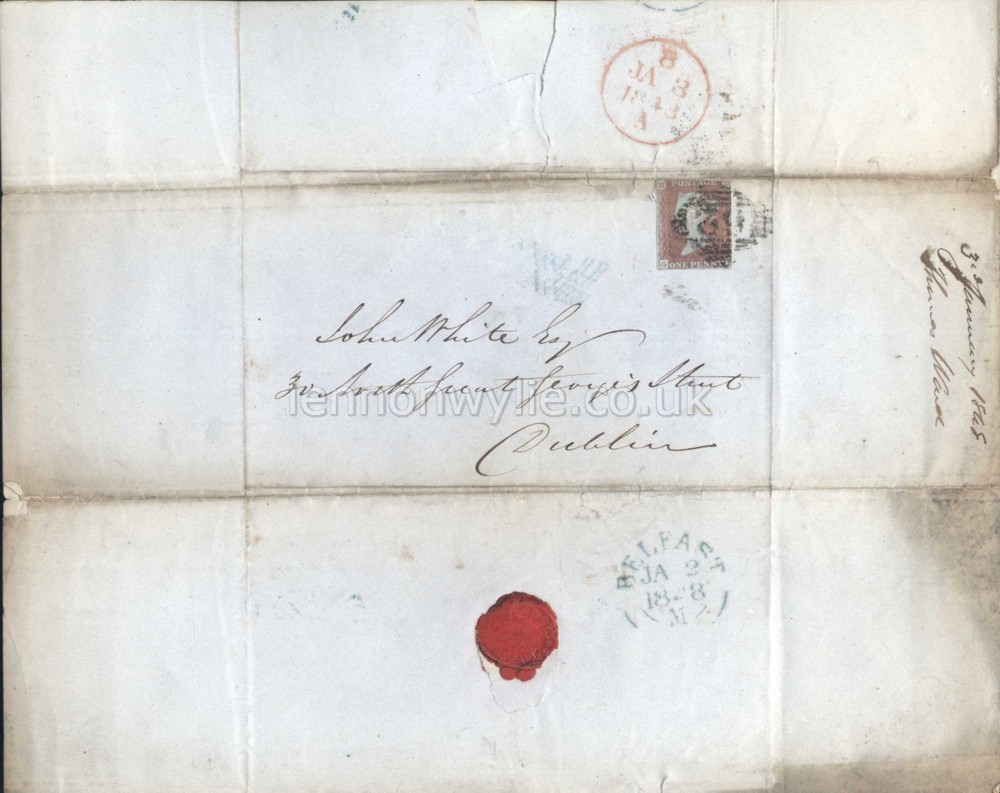 8
JA 3
1848
A
POSTAGE
ONE PENNY
John White Esq
30 North Great George's Street
lennonwylie.co.uk
Dublin
3rd January 1848
Thomas Ward
BELFAST
JA 2
1848
M